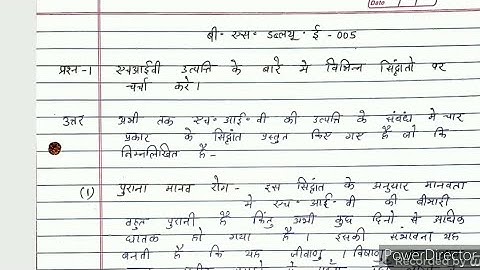 Date
बी॰ एस॰ डब्लयू॰ ई - 005
प्रश्न-1 एचआईवी उत्पत्ति के बारे मे विभिन्न सिद्वांतो पर
चर्चा करे ।
उत्तर अभी तक एच॰आई॰वी की उत्पत्ति के संबंध मे चार
प्रकार के सिद्वांत प्रस्तुत किए गए है जो कि
निम्नलिखित है -
(1) पुराना मानव रोग - इस सिद्वांत के अनुसार मानवता
मे एच॰ आई॰ वी की बीमारी
बहुत पुरानी है किंतु अभी कुछ दिनो से अधिक
घातक हो गया है इसकी संभावना यह
बनती है कि यह जीवाणु । विषाणु
PowerDirector